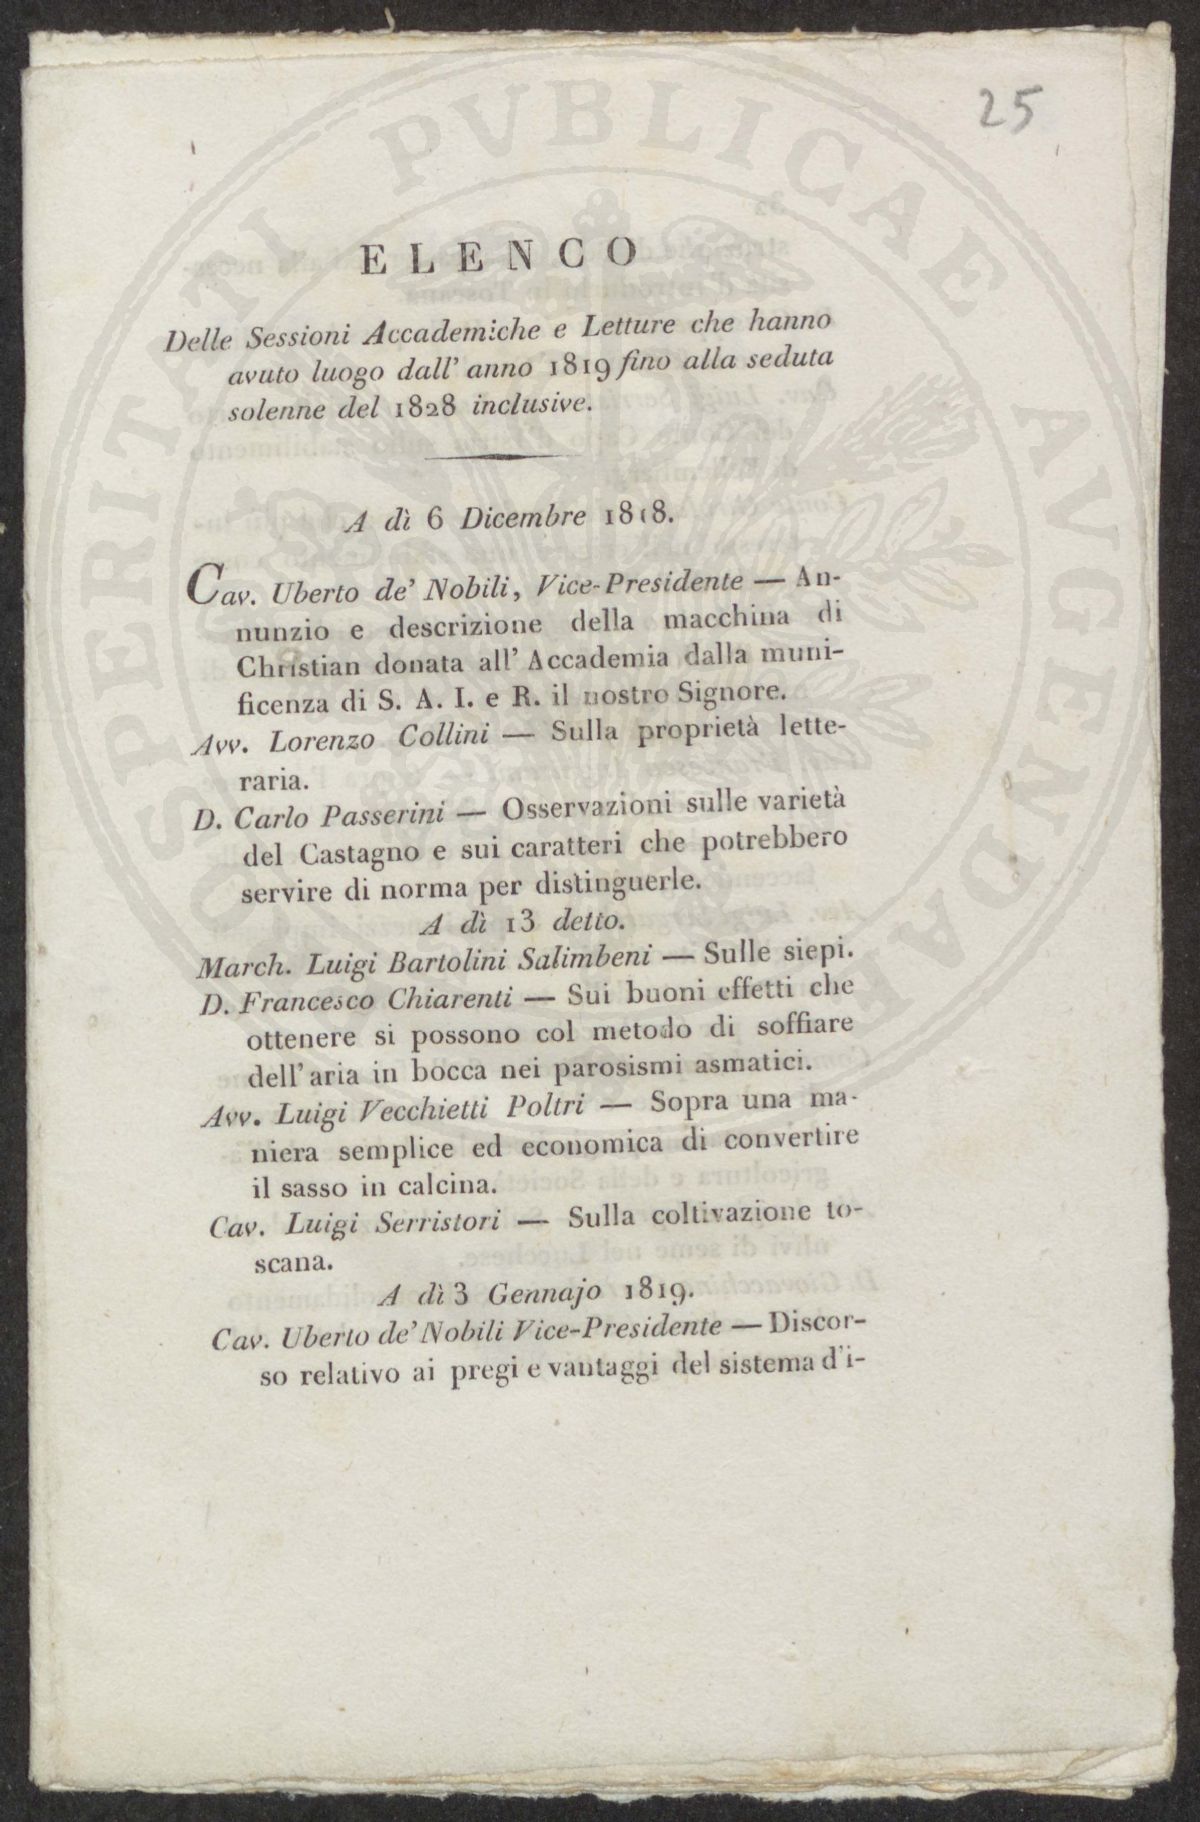 25
ELENCO
Delle Sessioni Accademiche e Letture che hanno
avuto luogo dall' anno 1819 fino alla seduta
solenne del 1828 inclusive.
A dì 6 Dicembre 1818.
Cav. Uberto de' Nobili, Vice-Presidente — An-
nunzio e descrizione della macchina di
Christian donata all' Accademia dalla muni-
ficenza di S. A. I. e R. il nostro Signore.
Avv. Lorenzo Collini — Sulla proprietà lette-
raria.
D. Carlo Passerini — Osservazioni sulle varietà
del Castagno e sui caratteri che potrebbero
servire di norma per distinguerle.
A dì 13 detto.
March. Luigi Bartolini Salimbeni — Sulle siepi.
D. Francesco Chiarenti — Sui buoni effetti che
ottenere si possono col metodo di soffiare
dell' aria in bocca nei parosismi asmatici.
Avv. Luigi Vecchietti Poltri — Sopra una ma-
niera semplice ed economica di convertire
il sasso in calcina.
Cav. Luigi Serristori — Sulla coltivazione to-
scana.
A dì 3 Gennajo 1819.
Cav. Uberto de' Nobili Vice-Presidente — Discor-
so relativo ai pregi e vantaggi del sistema d'i-
PROSPERITATI PVBLICAE AVGENDAE